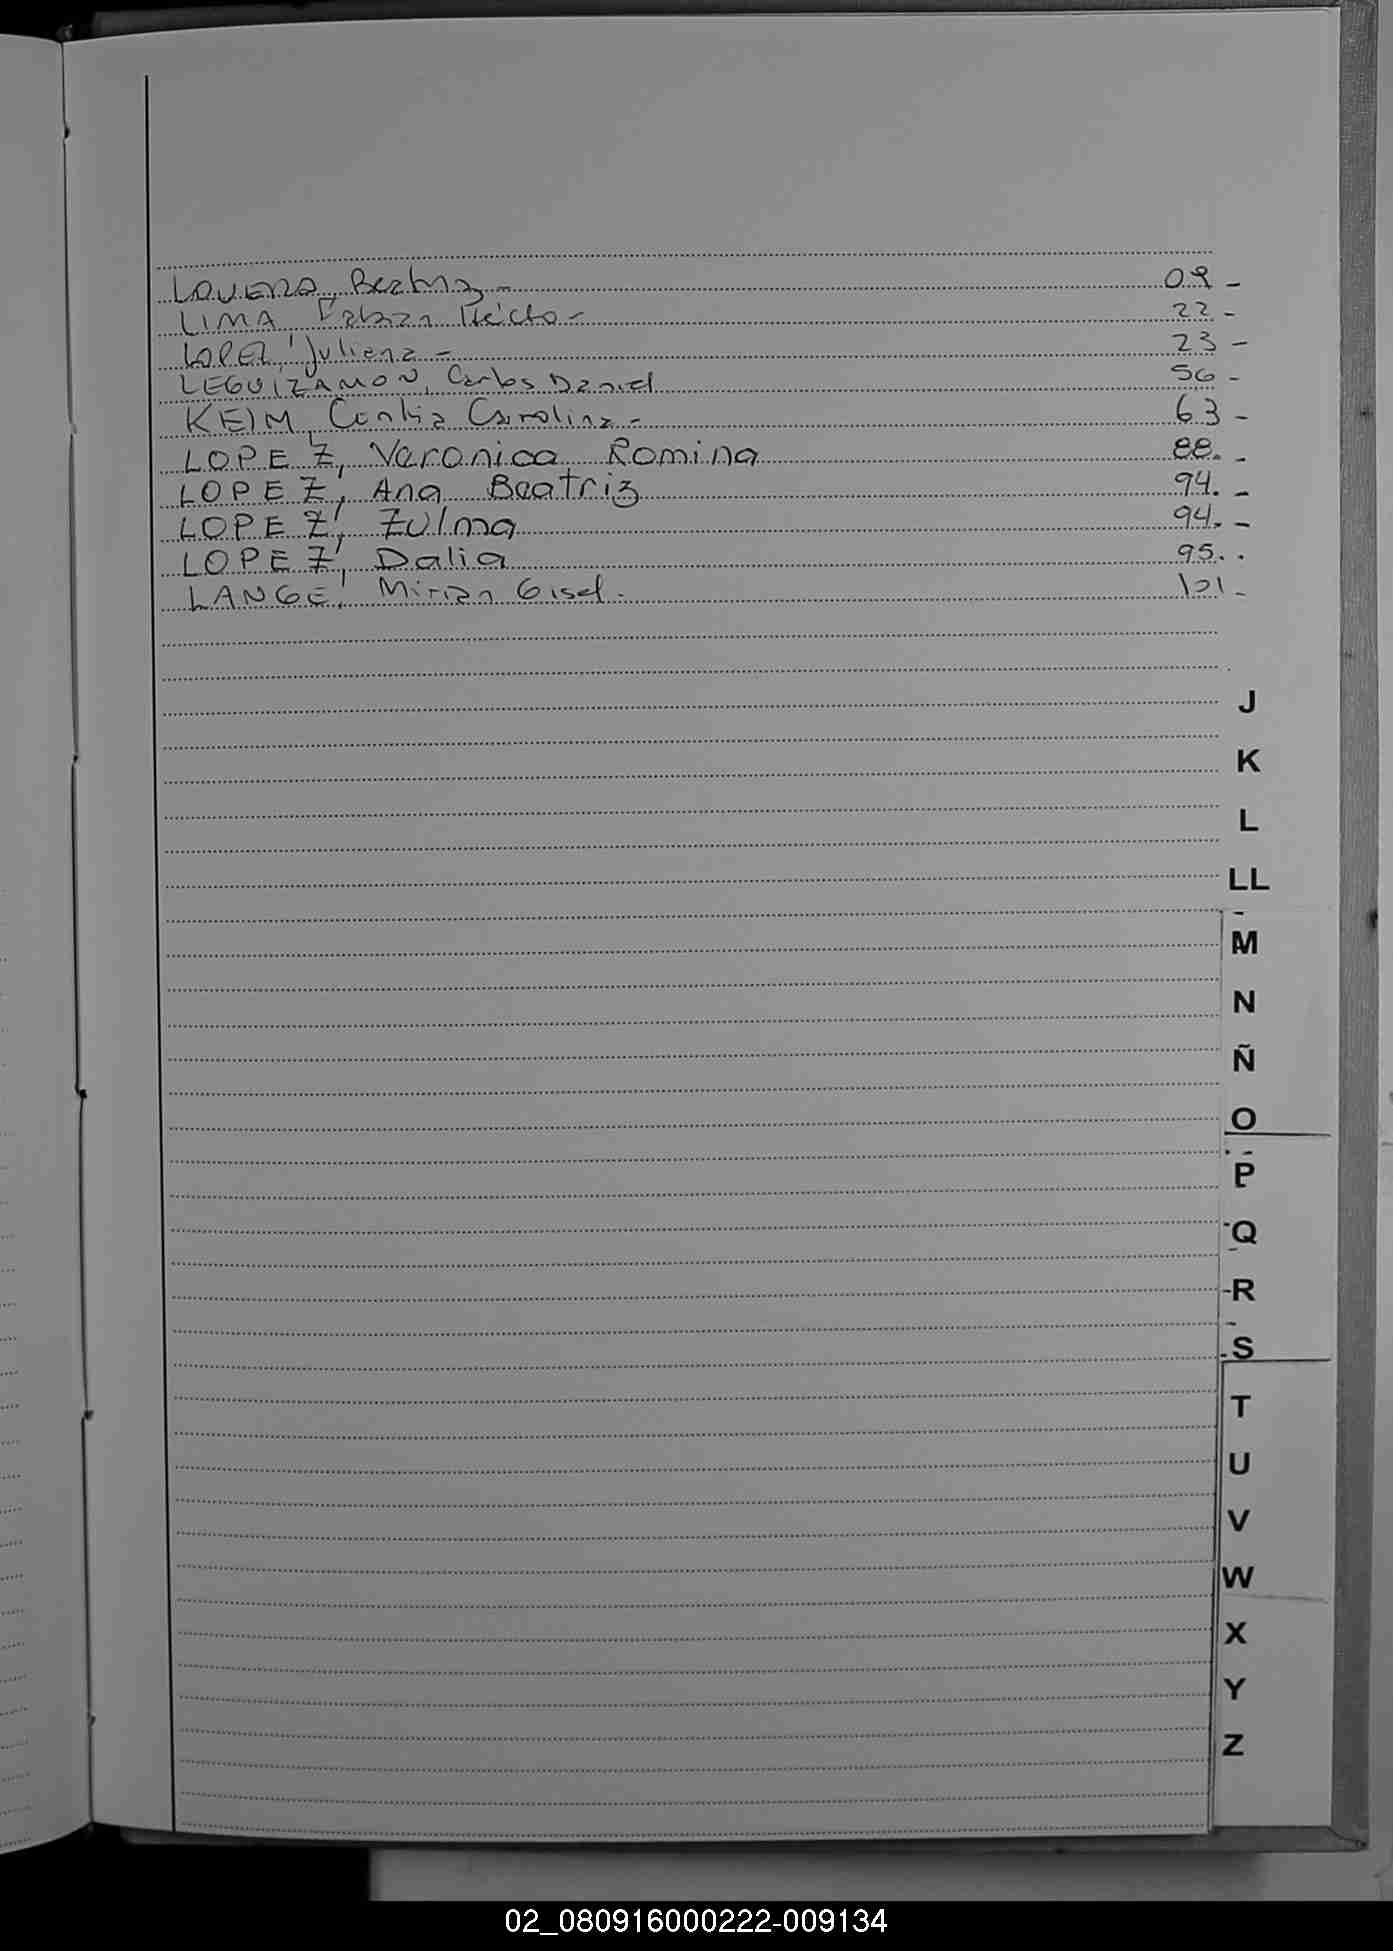 LOVERA, Beatriz - 09 -
LIMA, Fabian Héctor - 22 -
LOPEZ, Juliana - 23 -
LEGUIZAMON, Carlos Daniel 56 -
KEIM, Cintia Carolina - 63 -
LOPEZ, Veronica Romina 88. -
LOPEZ, Ana Beatriz 94. -
LOPEZ, Zulma 94. -
LOPEZ, Dalia 95. .
LANGE, Mirian Gisel. 101 -
J
K
L
LL
M
N
Ñ
O
P
Q
R
S
T
U
V
W
X
Y
Z
02_080916000222-009134